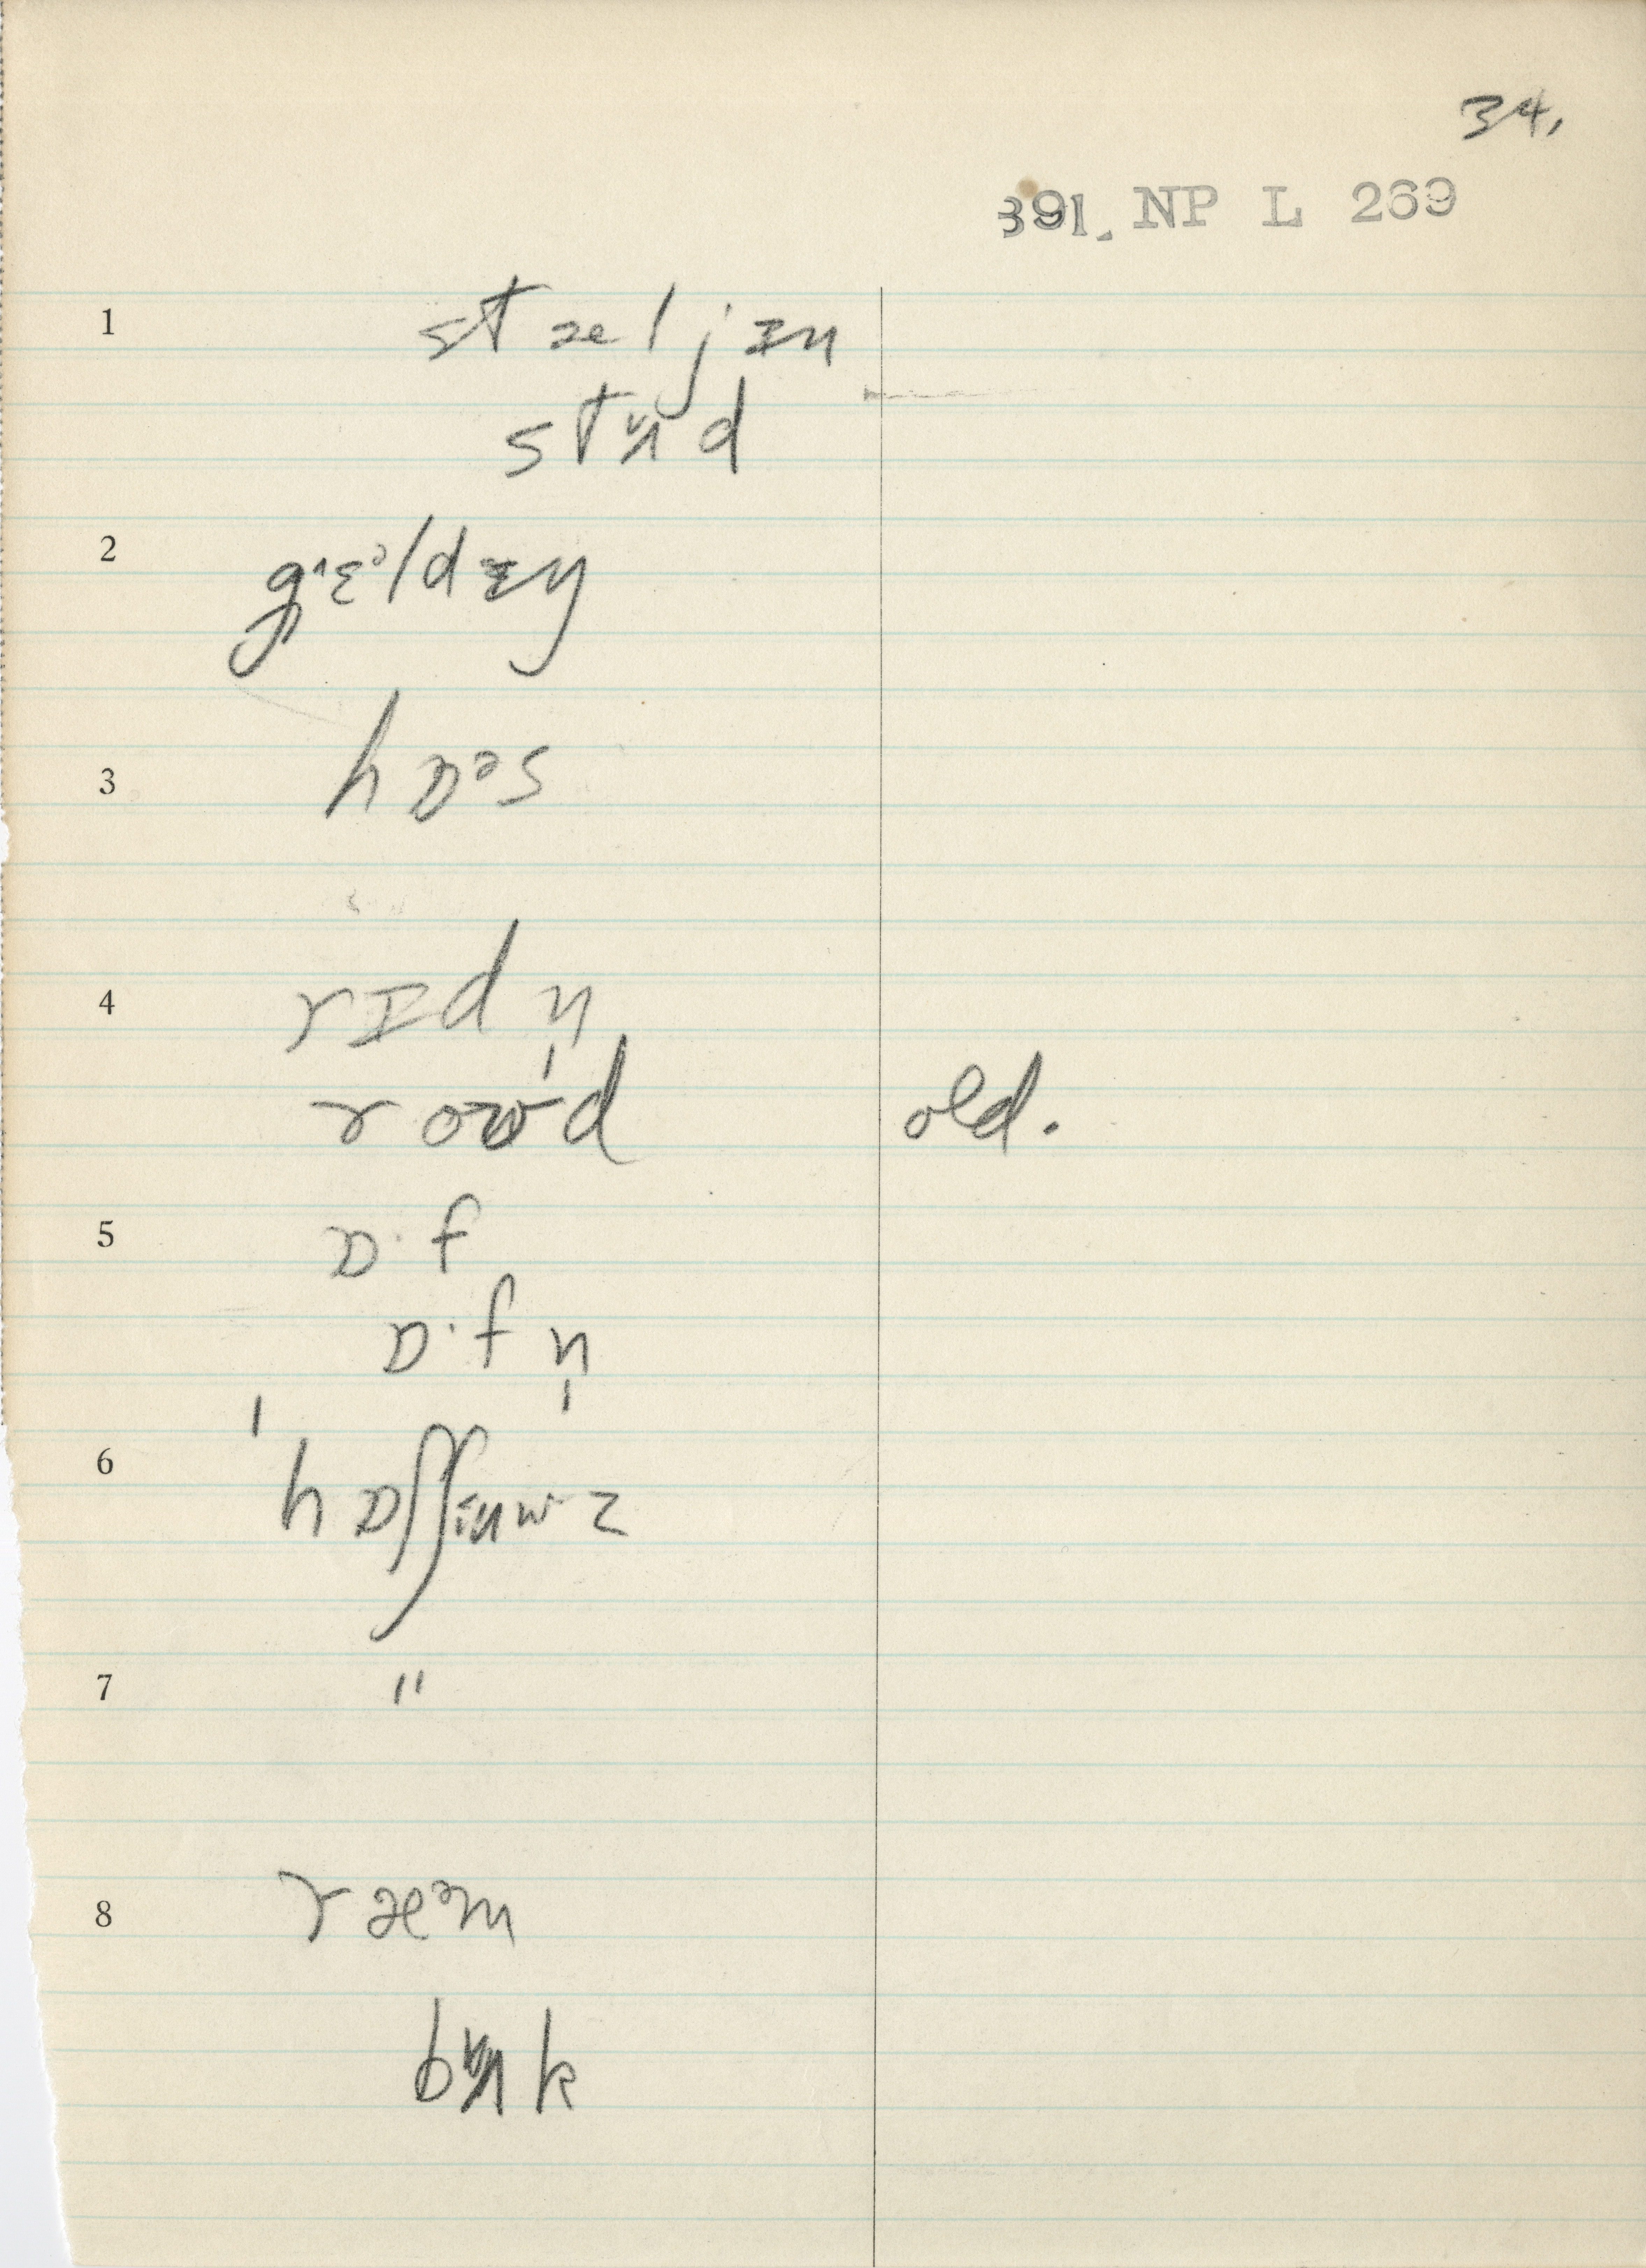 34.
391. NP L 269
1 stæljɪn
stʌd
2 g^ɛᵊldɪŋ
3 hɒᵊs
4 rɪdn̩
roʊd old.
5 ɒ·f
ɒ·fn̩
6 ˈhɒʃʃɪnɪz
7 "
8 ræᵊm
bʌk